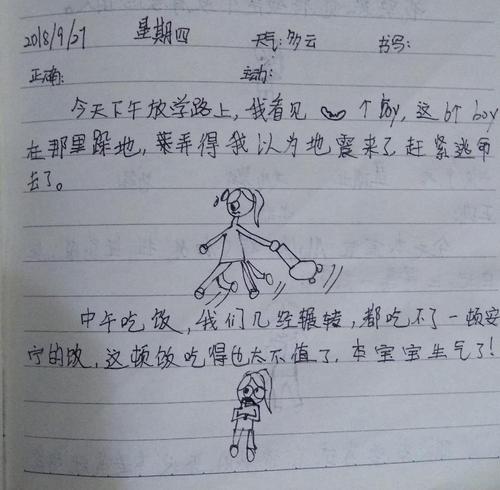 2018/9/27 星期四 天气:多云 书写:
正确: 主动:
今天下午放学路上,我看见 个boy,这6个boy
在那里跺地,萊弄得我以为地震来了赶紧逃命
去了。
中午吃饭,我们几经辗转,都吃不了一顿安
宁的饭,这顿饭吃得也太不值了.本宝宝生气了!